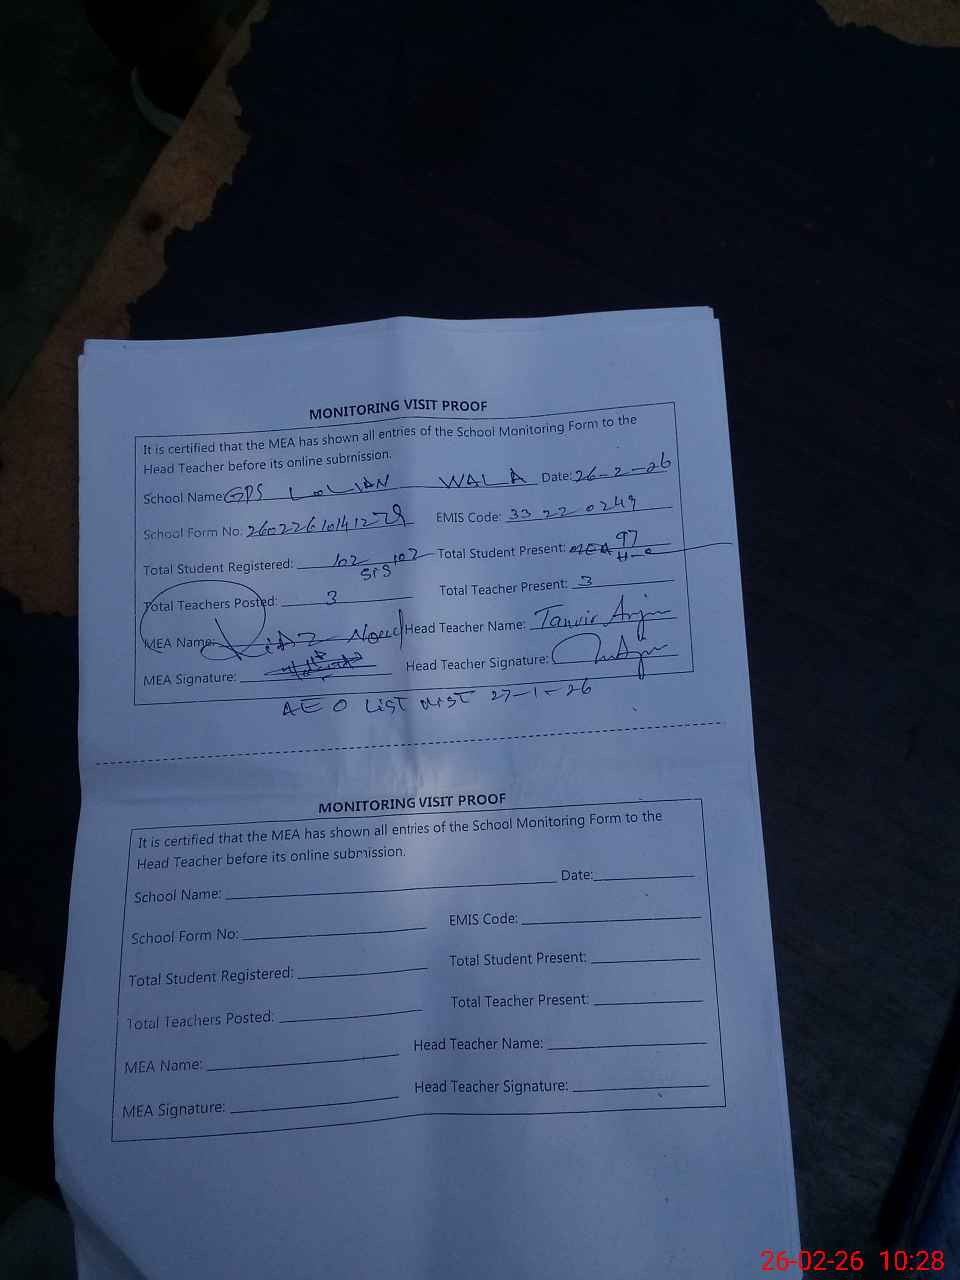 MONITORING VISIT PROOF
It is certified that the MEA has shown all entries of the School Monitoring Form to the
Head Teacher before its online submission.
School Name: GPS LOLIAN WALA Date: 26-2-26
School Form No: EMIS Code: 33220249
Total Student Registered: 102 SIS 102 Total Student Present: MEA 97
Total Teachers Posted: 3 Total Teacher Present: 3
MEA Name: Head Teacher Name: Tanvir Anjum
MEA Signature: Head Teacher Signature:
AEO LIST 27-1-26
MONITORING VISIT PROOF
It is certified that the MEA has shown all entries of the School Monitoring Form to the
Head Teacher before its online submission.
School Name: Date:
School Form No: EMIS Code:
Total Student Registered: Total Student Present:
Total Teachers Posted: Total Teacher Present:
MEA Name: Head Teacher Name:
MEA Signature: Head Teacher Signature:
26-02-26 10:28